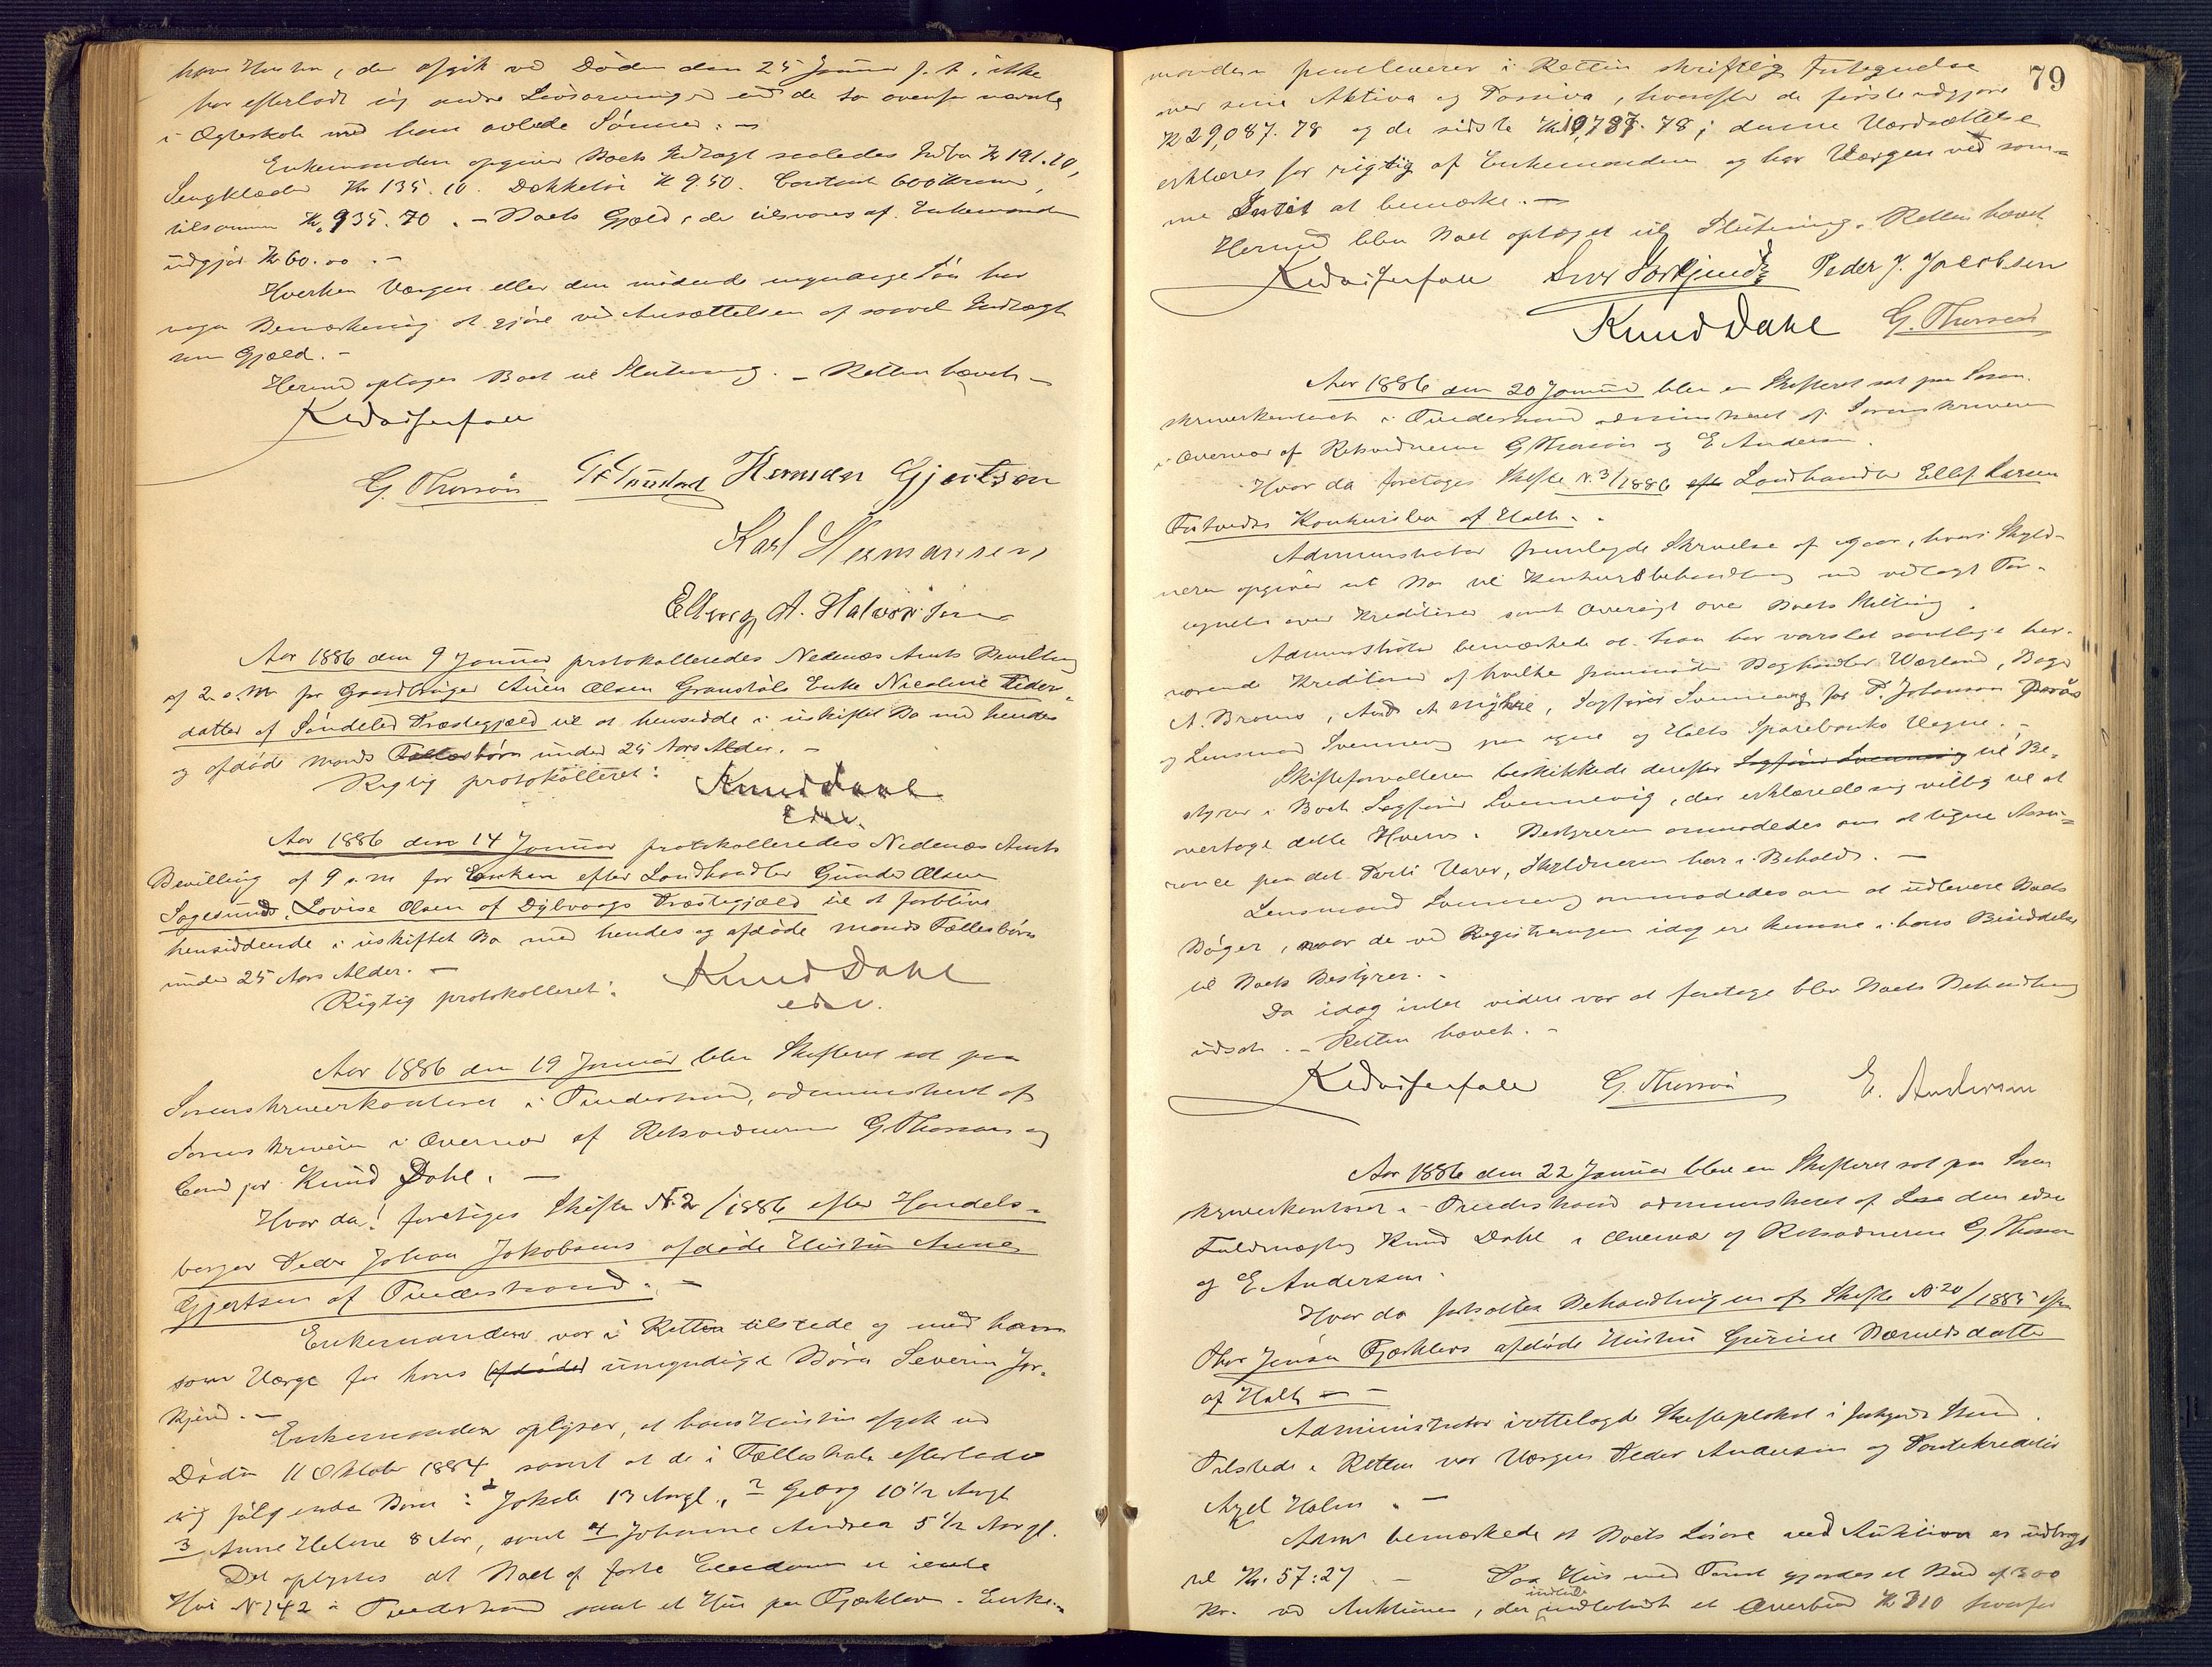 hans Hustru, der afgik ved Døden den 25 Januar f. A. ikke
har efterladt sig andre Livsarvinger end de to ovenfor nævnte
i Ægteskab med ham avlede Sønner. -
Enkemanden opgiver Boets Indtægt saaledes Indbo Kr 191.10,
Sengklæder Kr 135.10. Dækketøi Kr 9.50. Contant 600 Kroner,
tilsammen Kr. 935.70. - Boets Gjæld, der tilsvares af Enkemanden
udgjør Kr 60.00. -
Hverken Værgen eller den mødende umyndige Søn har
nogen Bemærkning at gjøre ved Ansættelsen af saavel Indtægt
som Gjæld. -
Hermed optages Boet til Slutning. - Retten hævet -
G. Thorsøn Hermder Gjertsen
Karl Hermansen
Ellevog A. Halvorsen
Aar 1886 den 9 Januar protokolleredes Nedenæs Amts Bevilling
af 2 s. M. for Gaardbruger Anen Olsen Granstøls Enke Nicoline Peders-
datter af Søndeled Præstegjæld til at hensidde i uskiftet Bo med hendes
og afdøde Mands Fællesbørn under 25 Aars Alder. -
Rigtig protokolleret: Knud Dahl
edsv.
Aar 1886 den 14 Januar protokolleredes Nedenæs Amts
Bevilling af 9 s. M. for Enken efter Landhandler Gunder Olsen
Sagesund, Lovise Olsen af Dybvaags Præstegjæld til at forblive
hensiddende i uskiftet Bo med hendes og afdøde Mands Fællesbørn
under 25 Aars Alder. -
Rigtig protokolleret: Knud Dahl
edsv.
Aar 1886 den 19 Januar blev Skifteret sat paa
Sorenskriverkontoret i Tvedestrand, administreret af
Sorenskriveren i Overvær af Retsvidnerne G Thorsøn og
Cand jur. Knud Dahl. -
Hvor da! foretoges Skifte N. 2/1886 efter Handels-
borger Peder Johan Jakobsens afdøde Hustru Anne
Gjertsen af Tvedestrand. -
Enkemanden var i Retten tilstede og med ham
som Værge for hans (afdøde) umyndige Børn Severin Tor-
kjend. -
Enkemanden oplyser, at hans Hustru afgik ved
Døden 11 Oktober 1884 samt at de i Fællesskab efterlade
sig følgende Børn: 1 Jakob 13 Aar gl., 2 Georg 10 1/2 Aar gl
3 Anne Helene 8 Aar, samt 4 Johanne Andrea 5 1/2 Aar gl.
Det oplystes at Boet af faste Eiendomme er eiende
Hus N 142 i Tvedestrand samt et Hus paa Fjærkleiv. Enke-
79
manden fremleverer i Retten skriftlig Fortegnelse
over sine Aktiva og Passiva, hvorefter de første udgjøre
Kr 29,087.78 og de sidste Kr 10,787.78; denne Værdsættelse
erklæres for rigtig af Enkemanden og har Værgen ved som-
me Intet at bemærke. -
Hermed blev Boet optaget til Slutning. Retten hævet
Peder J. Jacobsen
Knud Dahl G. Thorsøn
Aar 1886 den 20 Januar blev en Skifteret sat paa Soren-
skriverkontoret i Tvedestrand administreret af Sorenskriveren
i Overvær af Retsvidnerne G Thorsøn og E Andersen.
Hvor da foretoges Skifte N. 3/1886 efter Landhandler Ellef Larsen
Fostvedts Konkursbo af Holt. -
Administrator fremlagde Skrivelse af igaar, hvori Skyld-
neren opgiver sit Bo til Konkursbehandling med vedlagt For-
tegnelse over Kreditorer samt Oversigt over Boets Stilling.
Administrator bemærkede at han har varslet samtlige her-
værende Kreditorer af hvilke fremmødte Boghandler Værland, Bager
A. Broms, And A Myhre, Sagfører Svennevig for P. Johanson
og Lensmand Svennevig paa egne og Holts Sparebanks Vegne. -
Skifteforvalteren beskikkede derefter Sagfører Svennevig til Be-
styrer i Boet Sagfører Svennevig, der erklærede sig villig til at
overtage dette Hverv. Bestyreren anmodedes om at tegne Assu-
rance paa det Parti Varer, Skyldneren har i Behold. -
Lensmand Svennevig anmodedes om at udlevere Boets
Bøger, naar de ved Registreringen idag ere komne i hans Besiddelse
til Boets Bestyrer. -
Da idag intet videre var at foretage blev Boets Behandling
udsat. - Retten hævet. -
G. Thorsøn E. Andersen
Aar 1886 den 22 Januar blev en Skifteret sat paa Soren
skriverkontoret i Tvedestrand administreret af Sor den edsv
Fuldmægtig Knud Dahl i Overvær af Retsvidnerne G. Thorsøn
og E Andersen.
Hvor da fortsattes Behandlingen af Skifte N. 20/1885 efter
Thor Jensen Fjærkleivs afdøde Hustru Gurine Berntsdatter
af Holt - -
Administrator irettelagde Skifteplakat i forkyndt Stand.
Tilstede i Retten var Værgen Peder Andersen og Pantekreditor
Axel Holm. -
Adm bemærkede at Boets Løsøre ved Auktion er udbragt
til Kr. 57:27. - Paa Hus med Tomt gjordes et Bud af 300
Kr. ved Auktionen, der indløb et Overbud Kr 310 hvorfor